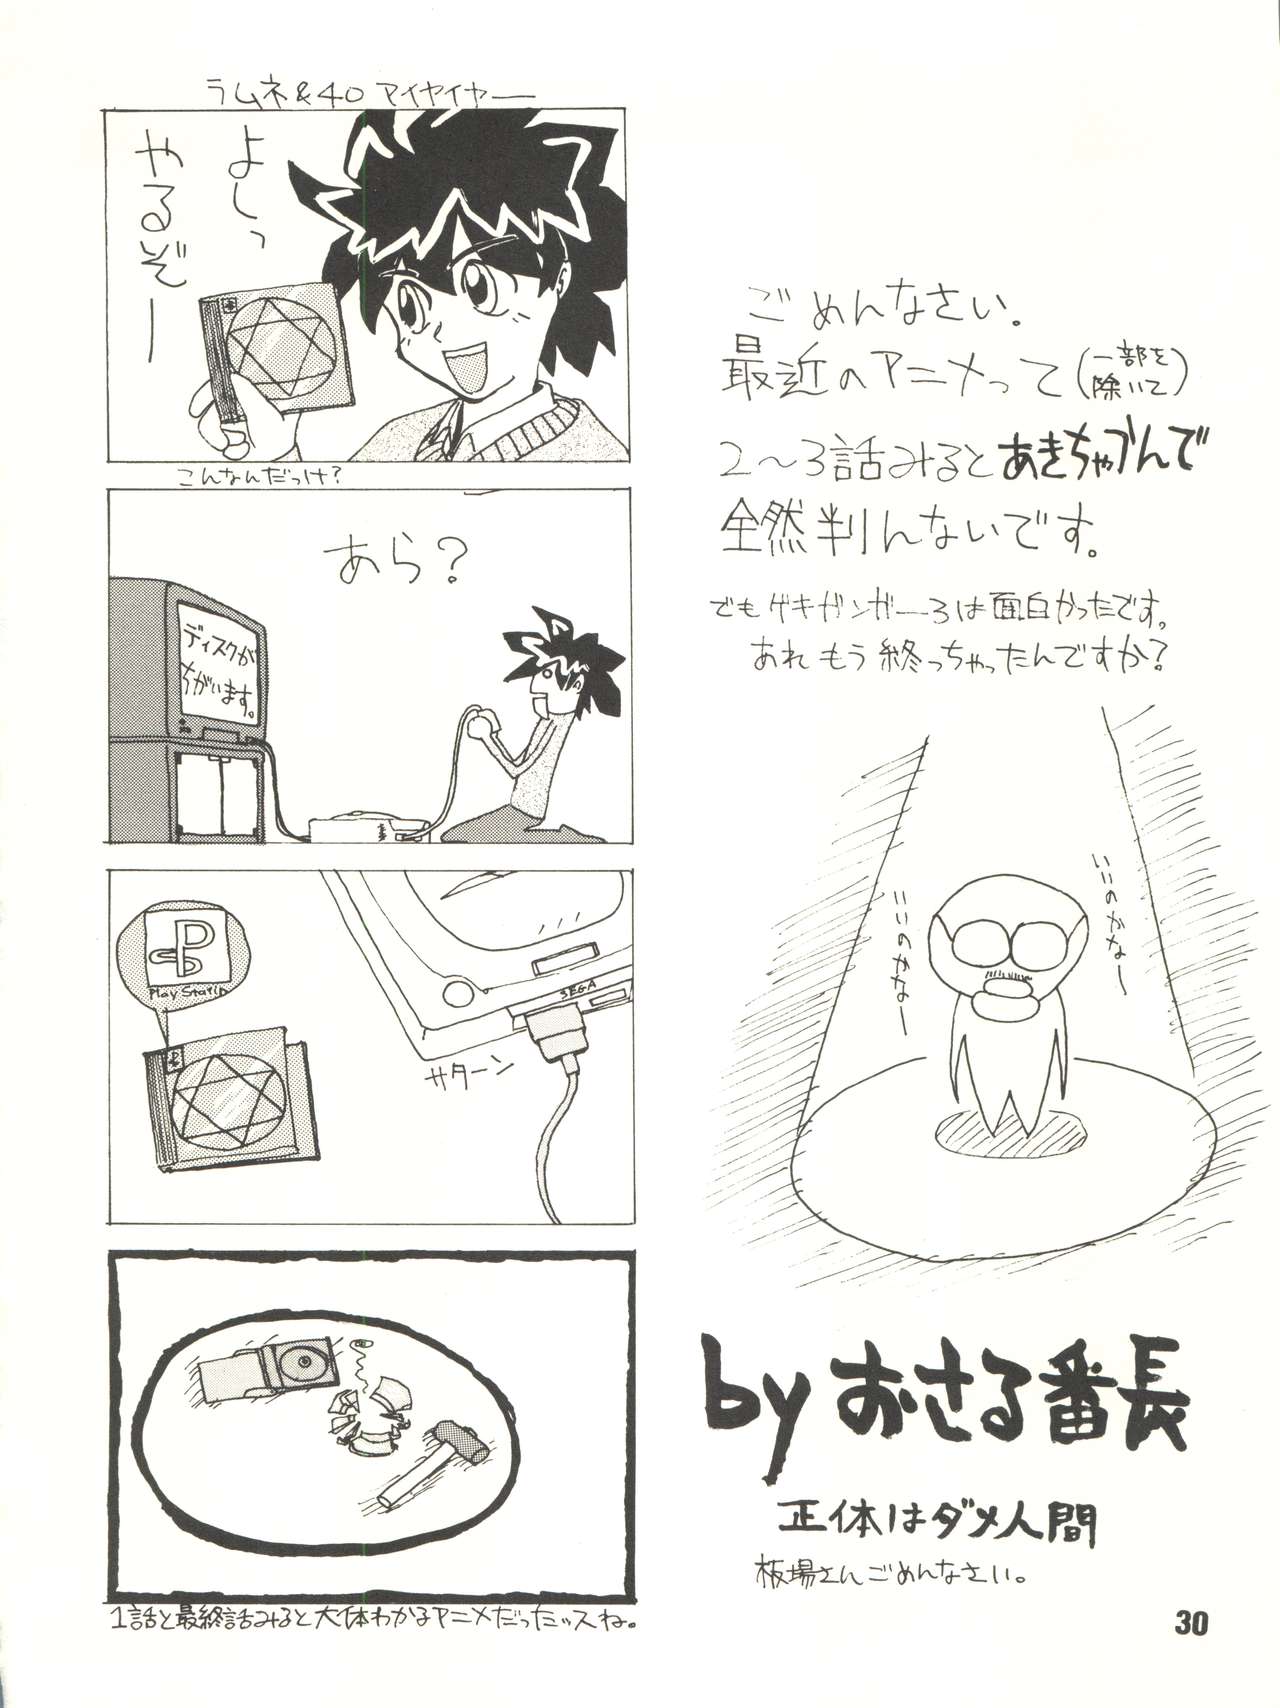 ラムネ&40 アイヤイヤー
よしっ
やるぞー
こんなんだっけ?
あら?
ディスクが
ちがいます。
Play Statio
SEGA
サターン
1話と最終話みると大体わかるアニメだったッスね。
ごめんなさい。
最近のアニメって(一部を除いて)
2～3話みるとあきちゃうんで
全然判んないです。
でもゲキガンガー3は面白かったです。
あれもう終っちゃったんですか?
いいのかなー
いいのかなー
by おさる番長
正体はダメ人間
板場さんごめんなさい。
30